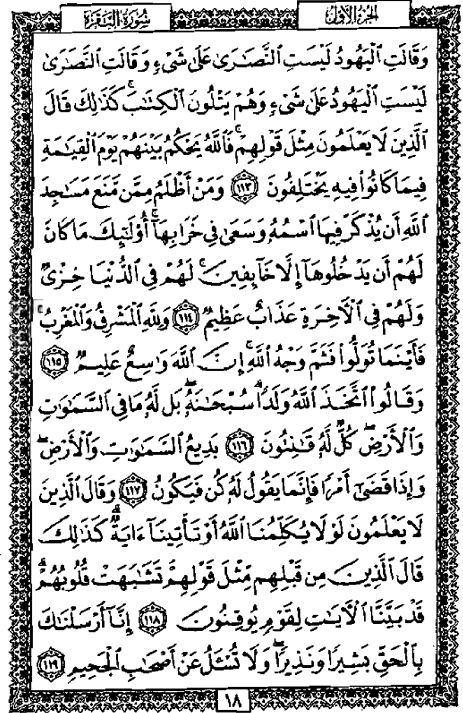 سُورَةُ البَقَرَةِ
الجُزءُ الأَوَّلُ
وَقَالَتِ ٱلْيَهُودُ لَيْسَتِ ٱلنَّصَٰرَىٰ عَلَىٰ شَىْءٍ وَقَالَتِ ٱلنَّصَٰرَىٰ
لَيْسَتِ ٱلْيَهُودُ عَلَىٰ شَىْءٍ وَهُمْ يَتْلُونَ ٱلْكِتَٰبَ ۗ كَذَٰلِكَ قَالَ
ٱلَّذِينَ لَا يَعْلَمُونَ مِثْلَ قَوْلِهِمْ ۚ فَٱللَّهُ يَحْكُمُ بَيْنَهُمْ يَوْمَ ٱلْقِيَٰمَةِ
فِيمَا كَانُوا۟ فِيهِ يَخْتَلِفُونَ ١١٣ وَمَنْ أَظْلَمُ مِمَّن مَّنَعَ مَسَٰجِدَ
ٱللَّهِ أَن يُذْكَرَ فِيهَا ٱسْمُهُۥ وَسَعَىٰ فِى خَرَابِهَآ ۚ أُو۟لَٰٓئِكَ مَا كَانَ
لَهُمْ أَن يَدْخُلُوهَآ إِلَّا خَآئِفِينَ ۚ لَهُمْ فِى ٱلدُّنْيَا خِزْىٌ
وَلَهُمْ فِى ٱلْءَاخِرَةِ عَذَابٌ عَظِيمٌ ١١٤ وَلِلَّهِ ٱلْمَشْرِقُ وَٱلْمَغْرِبُ ۚ
فَأَيْنَمَا تُوَلُّوا۟ فَثَمَّ وَجْهُ ٱللَّهِ ۚ إِنَّ ٱللَّهَ وَٰسِعٌ عَلِيمٌ ١١٥
وَقَالُوا۟ ٱتَّخَذَ ٱللَّهُ وَلَدًا ۗ سُبْحَٰنَهُۥ ۖ بَل لَّهُۥ مَا فِى ٱلسَّمَٰوَٰتِ
وَٱلْأَرْضِ ۖ كُلٌّ لَّهُۥ قَٰنِتُونَ ١١٦ بَدِيعُ ٱلسَّمَٰوَٰتِ وَٱلْأَرْضِ ۖ
وَإِذَا قَضَىٰٓ أَمْرًا فَإِنَّمَا يَقُولُ لَهُۥ كُن فَيَكُونُ ١١٧ وَقَالَ ٱلَّذِينَ
لَا يَعْلَمُونَ لَوْلَا يُكَلِّمُنَا ٱللَّهُ أَوْ تَأْتِينَآ ءَايَةٌ ۗ كَذَٰلِكَ
قَالَ ٱلَّذِينَ مِن قَبْلِهِم مِّثْلَ قَوْلِهِمْ ۘ تَشَٰبَهَتْ قُلُوبُهُمْ ۗ
قَدْ بَيَّنَّا ٱلْءَايَٰتِ لِقَوْمٍ يُوقِنُونَ ١١٨ إِنَّآ أَرْسَلْنَٰكَ
بِٱلْحَقِّ بَشِيرًا وَنَذِيرًا ۖ وَلَا تُسْـَٔلُ عَنْ أَصْحَٰبِ ٱلْجَحِيمِ ١١٩
١٨